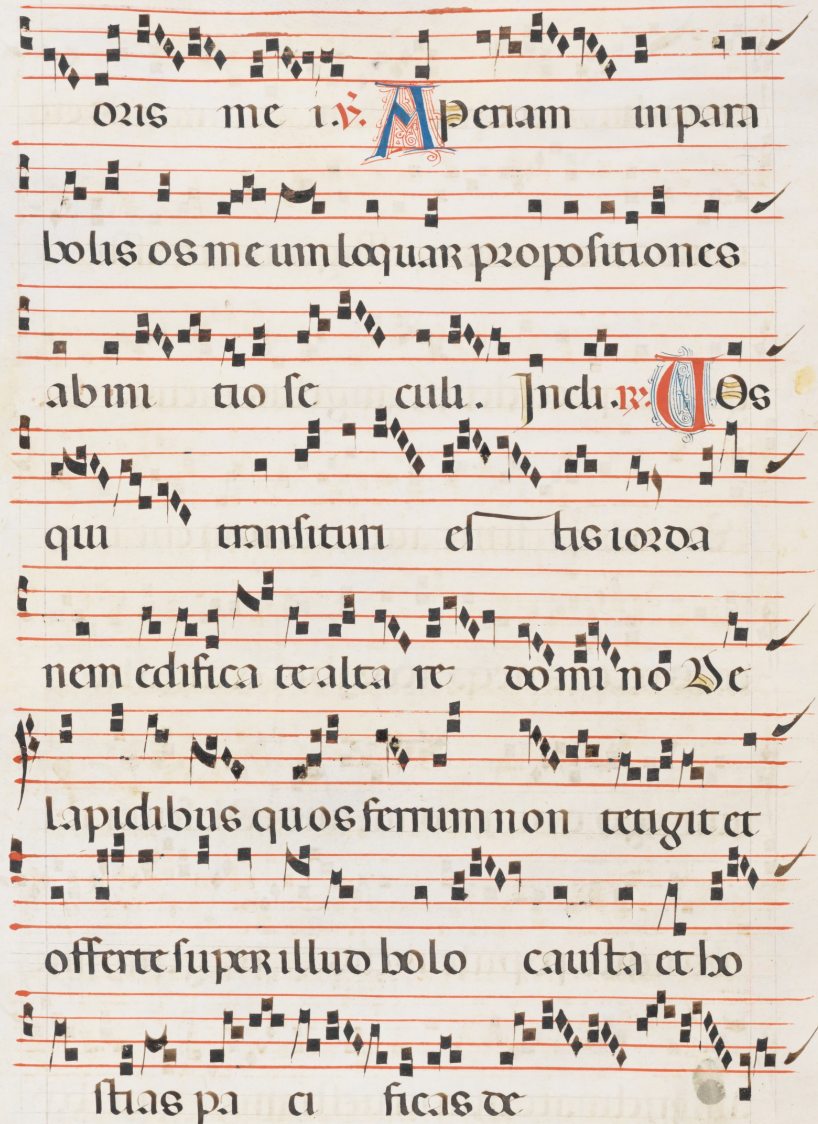 oris me i. ℣. Aperiam in para
bolis os meum loquar propositiones
ab ini tio se culi. Incli. ℟. Vos
qui transituri es tis iorda
nem edifica te alta re domino De
lapidibus quos ferrum non tetigit et
offerte super illud holo causta et ho
stias pa ci ficas de